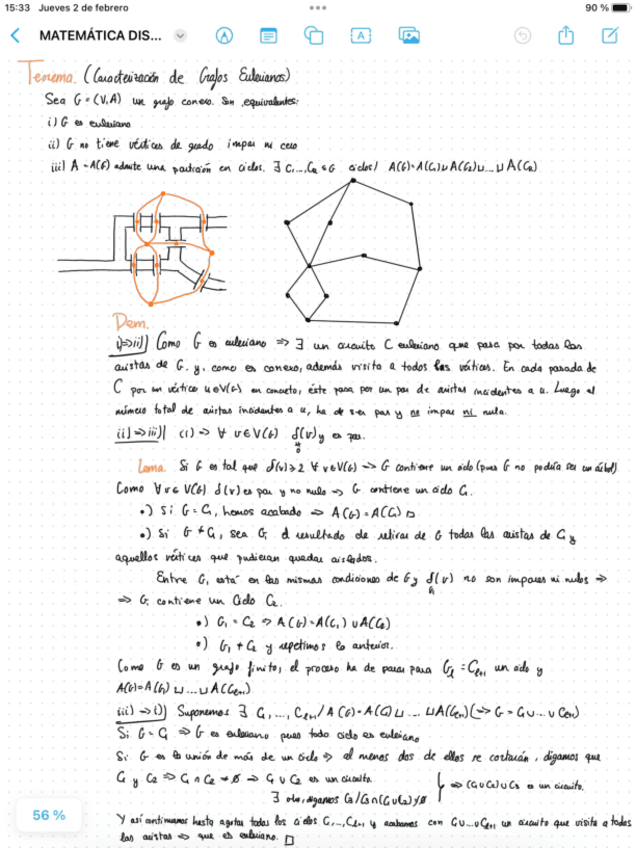 15:33 Jueves 2 de febrero
90 %
MATEMÁTICA DIS...
Teorema. (Caracterización de Grafos Eulerianos)
Sea G = (V,A) un grafo conexo. Son equivalentes:
i) G es euleriano
ii) G no tiene vértices de grado impar ni cero
iii) A = A(G) admite una partición en ciclos. ∃ C₁,...,Cₖ ⊆ G ciclos / A(G) = A(C₁) ⊔ A(C₂) ⊔ ... ⊔ A(Cₖ)
Dem.
i) ⇒ ii)| Como G es euleriano ⇒ ∃ un circuito C euleriano que pasa por todas las
aristas de G. y, como es conexo, además visita a todos los vértices. En cada pasada de
C por un vértice u∈V(G) en concreto, éste pasa por un par de aristas incidentes a u. Luego el
número total de aristas incidentes a u, ha de ser par y no impar ni nula.
ii) ⇒ iii)| (i) ⇒ ∀ v∈V(G) δ(v) y es par.
≠
0
Lema. Si G es tal que δ(v) ≥ 2 ∀ v∈V(G) ⇒ G contiene un ciclo (pues G no podría ser un árbol)
Como ∀v∈V(G) δ(v) es par y no nulo ⇒ G contiene un ciclo C₁.
•) Si G = C₁, hemos acabado ⇒ A(G) = A(C₁) □
•) Si G ≠ C₁, sea G₁ el resultado de retirar de G todas las aristas de C₁ y
aquellos vértices que pudieran quedar aislados.
Entre G₁ está en las mismas condiciones de G y δ(v) no son impares ni nulos ⇒
G₁
⇒ G₁ contiene un Ciclo C₂.
•) G₁ = C₂ ⇒ A(G) = A(C₁) ∪ A(C₂)
•) G₁ ≠ C₂ y repetimos lo anterior.
Como G es un grafo finito, el proceso ha de parar para Gₗ = Cₗ₊₁ un ciclo y
A(G) = A(C₁) ⊔ ... ⊔ A(Cₗ₊₁)
iii) ⇒ i)| Suponemos ∃ C₁, ..., Cₗ₊₁ / A(G) = A(C₁) ⊔ ... ⊔ A(Cₗ₊₁) (⇒ G = C₁ ∪ ... ∪ Cₗ₊₁)
Si G = C₁ ⇒ G es euleriano pues todo ciclo es euleriano
Si G es la unión de más de un ciclo ⇒ al menos dos de ellos se cortarán, digamos que
C₁ y C₂ ⇒ C₁ ∩ C₂ ≠ ∅ ⇒ C₁ ∪ C₂ es un circuito.
∃ otro, digamos C₃ / C₃ ∩ (C₁ ∪ C₂) ≠ ∅ } ⇒ (C₁ ∪ C₂) ∪ C₃ es un circuito.
Y así continuamos hasta agotar todos los ciclos C₁, ..., Cₗ₊₁ y acabamos con C₁ ∪ ... ∪ Cₗ₊₁ un circuito que visita a todas
las aristas ⇒ que es euleriano. □
56 %